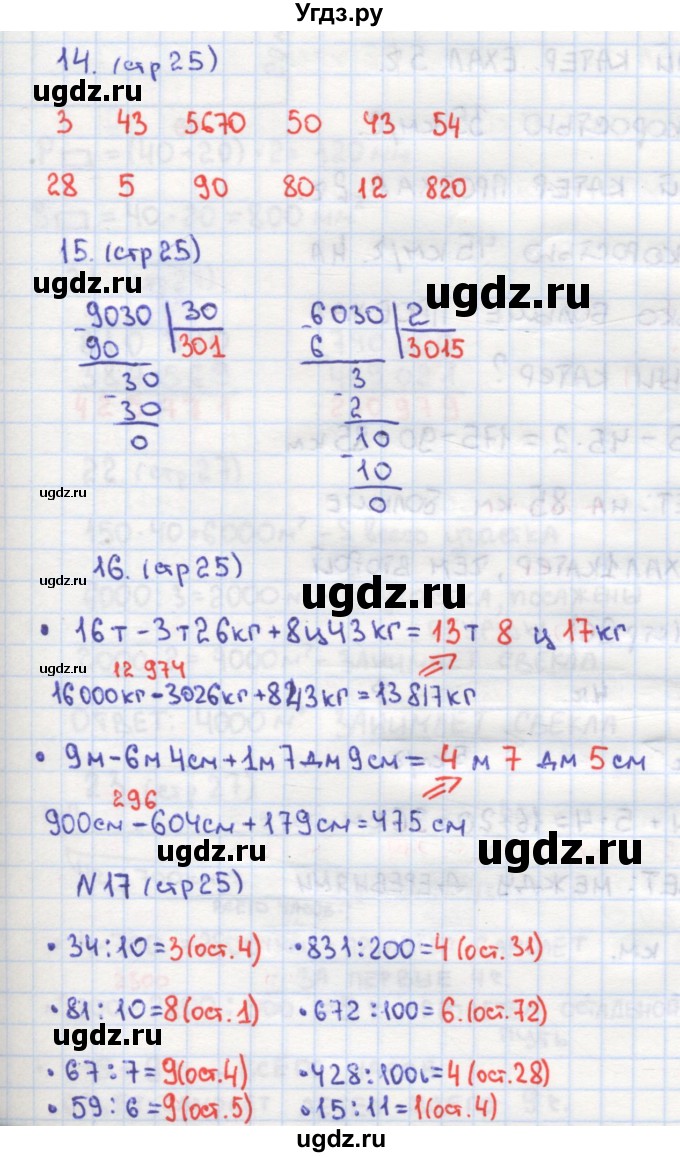 Угдз.ру
14. (стр 25)
ugdz.ru
3 43 5670 50 43 54
28 5 90 80 12 820
15. (стр 25)
ugdz.ru
9030 30 6030 2
- 90 301 - 6 3015
30 3
- 30 - 2
0 10
- 10
ugdz.ru
0
16. (стр 25)
ugdz.ru
ugdz.ru
• 16т - 3т 26кг + 8ц 43кг = 13т 8 ц 17кг
ugdz.ru
12 974
16000кг - 3026кг + 843кг = 13817кг
• 9м - 6м 4см + 1м 7дм 9см = 4 м 7 дм 5 см
296
900см - 604см + 179см = 475 см
ugdz.ru
ugdz.ru
N17 (стр 25)
• 34:10=3(ост.4) • 831:200=4(ост.31)
• 81:10=8(ост.1) • 672:100=6.(ост.72)
ugdz.ru
• 67:7=9(ост.4) • 428:100=4(ост.28)
• 59:6=9(ост.5) • 15:11=1(ост.4)
ugdz.ru
ugdz.ru